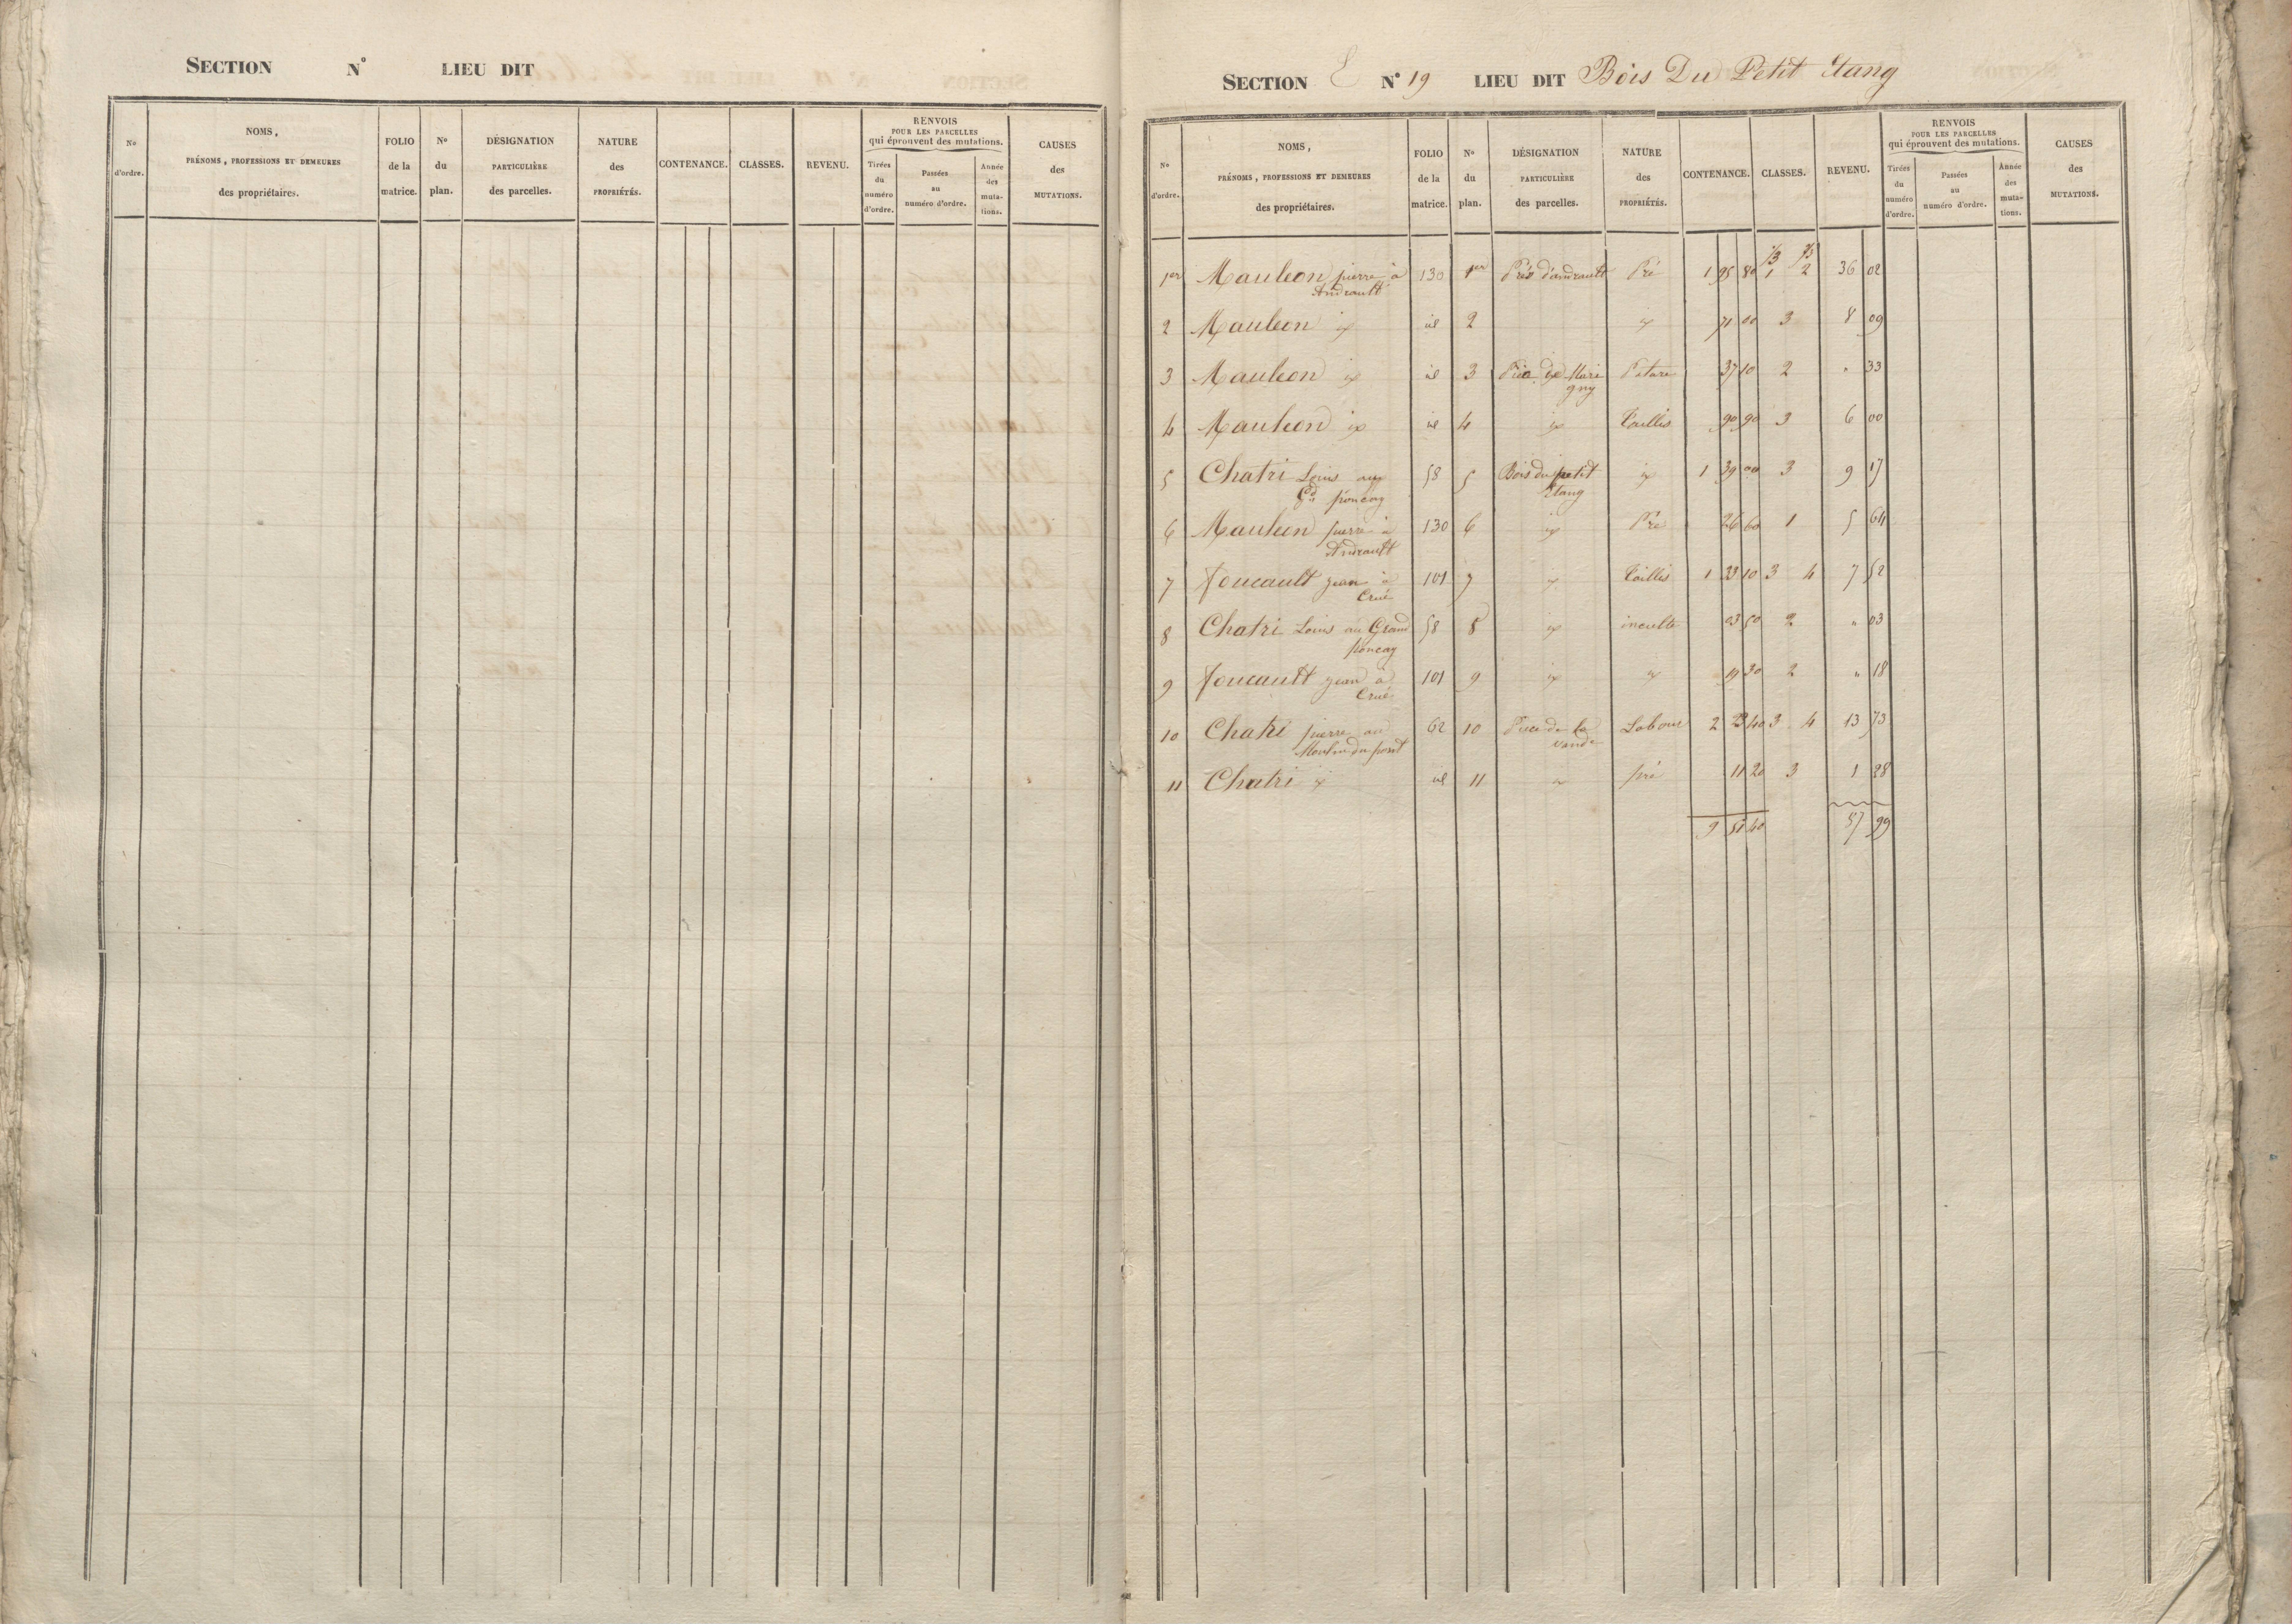 SECTION N° LIEU DIT
No d'ordre.
NOMS,
PRÉNOMS, PROFESSIONS ET DEMEURES
des propriétaires.
FOLIO de la matrice.
No du plan.
DÉSIGNATION PARTICULIÈRE des parcelles.
NATURE des PROPRIÉTÉS.
CONTENANCE.
CLASSES.
REVENU.
RENVOIS
POUR LES PARCELLES
qui éprouvent des mutations.
Tirées du numéro d'ordre.
Passées au numéro d'ordre.
Année des muta- tions.
CAUSES des MUTATIONS.
SECTION E N° 19 LIEU DIT Bois Du Petit Etang
No d'ordre.
NOMS,
PRÉNOMS, PROFESSIONS ET DEMEURES
des propriétaires.
FOLIO de la matrice.
No du plan.
DÉSIGNATION PARTICULIÈRE des parcelles.
NATURE des PROPRIÉTÉS.
CONTENANCE.
CLASSES.
REVENU.
RENVOIS
POUR LES PARCELLES
qui éprouvent des mutations.
Tirées du numéro d'ordre.
Passées au numéro d'ordre.
Année des muta- tions.
CAUSES des MUTATIONS.
1/3 2/3
1er Mauleon pierre à 130 1er Prés d'andrault Pré 1 95 80 1 2 36 02
Andrault
2 Mauleon id 2 71 00 3 8 09
3 Mauleon id 3 Mari 37 10 2 " 33
gny
4 Mauleon id 4 Taillis 90 90 3 6 00
5 Chatri Louis au 58 5 Bois du petit 1 39 00 3 9 17
Gd poncay Etang
6 Mauleon pierre à 130 6 Pré 26 60 1 5 64
Andrault
7 foucault jean à 101 7 Taillis 1 33 10 3 4 7 52
Crué
8 Chatri Louis au Grand 58 8 inculte 03 50 2 " 03
poncay
9 foucault jean à 101 9 19 30 2 " 18
Crué
10 Chatri pierre au 62 10 Piece de la Labour 2 23 40 3 4 13 73
Moulin du pont
11 Chatri id 11 pré 11 20 3 1 28
9 51 40 87 99